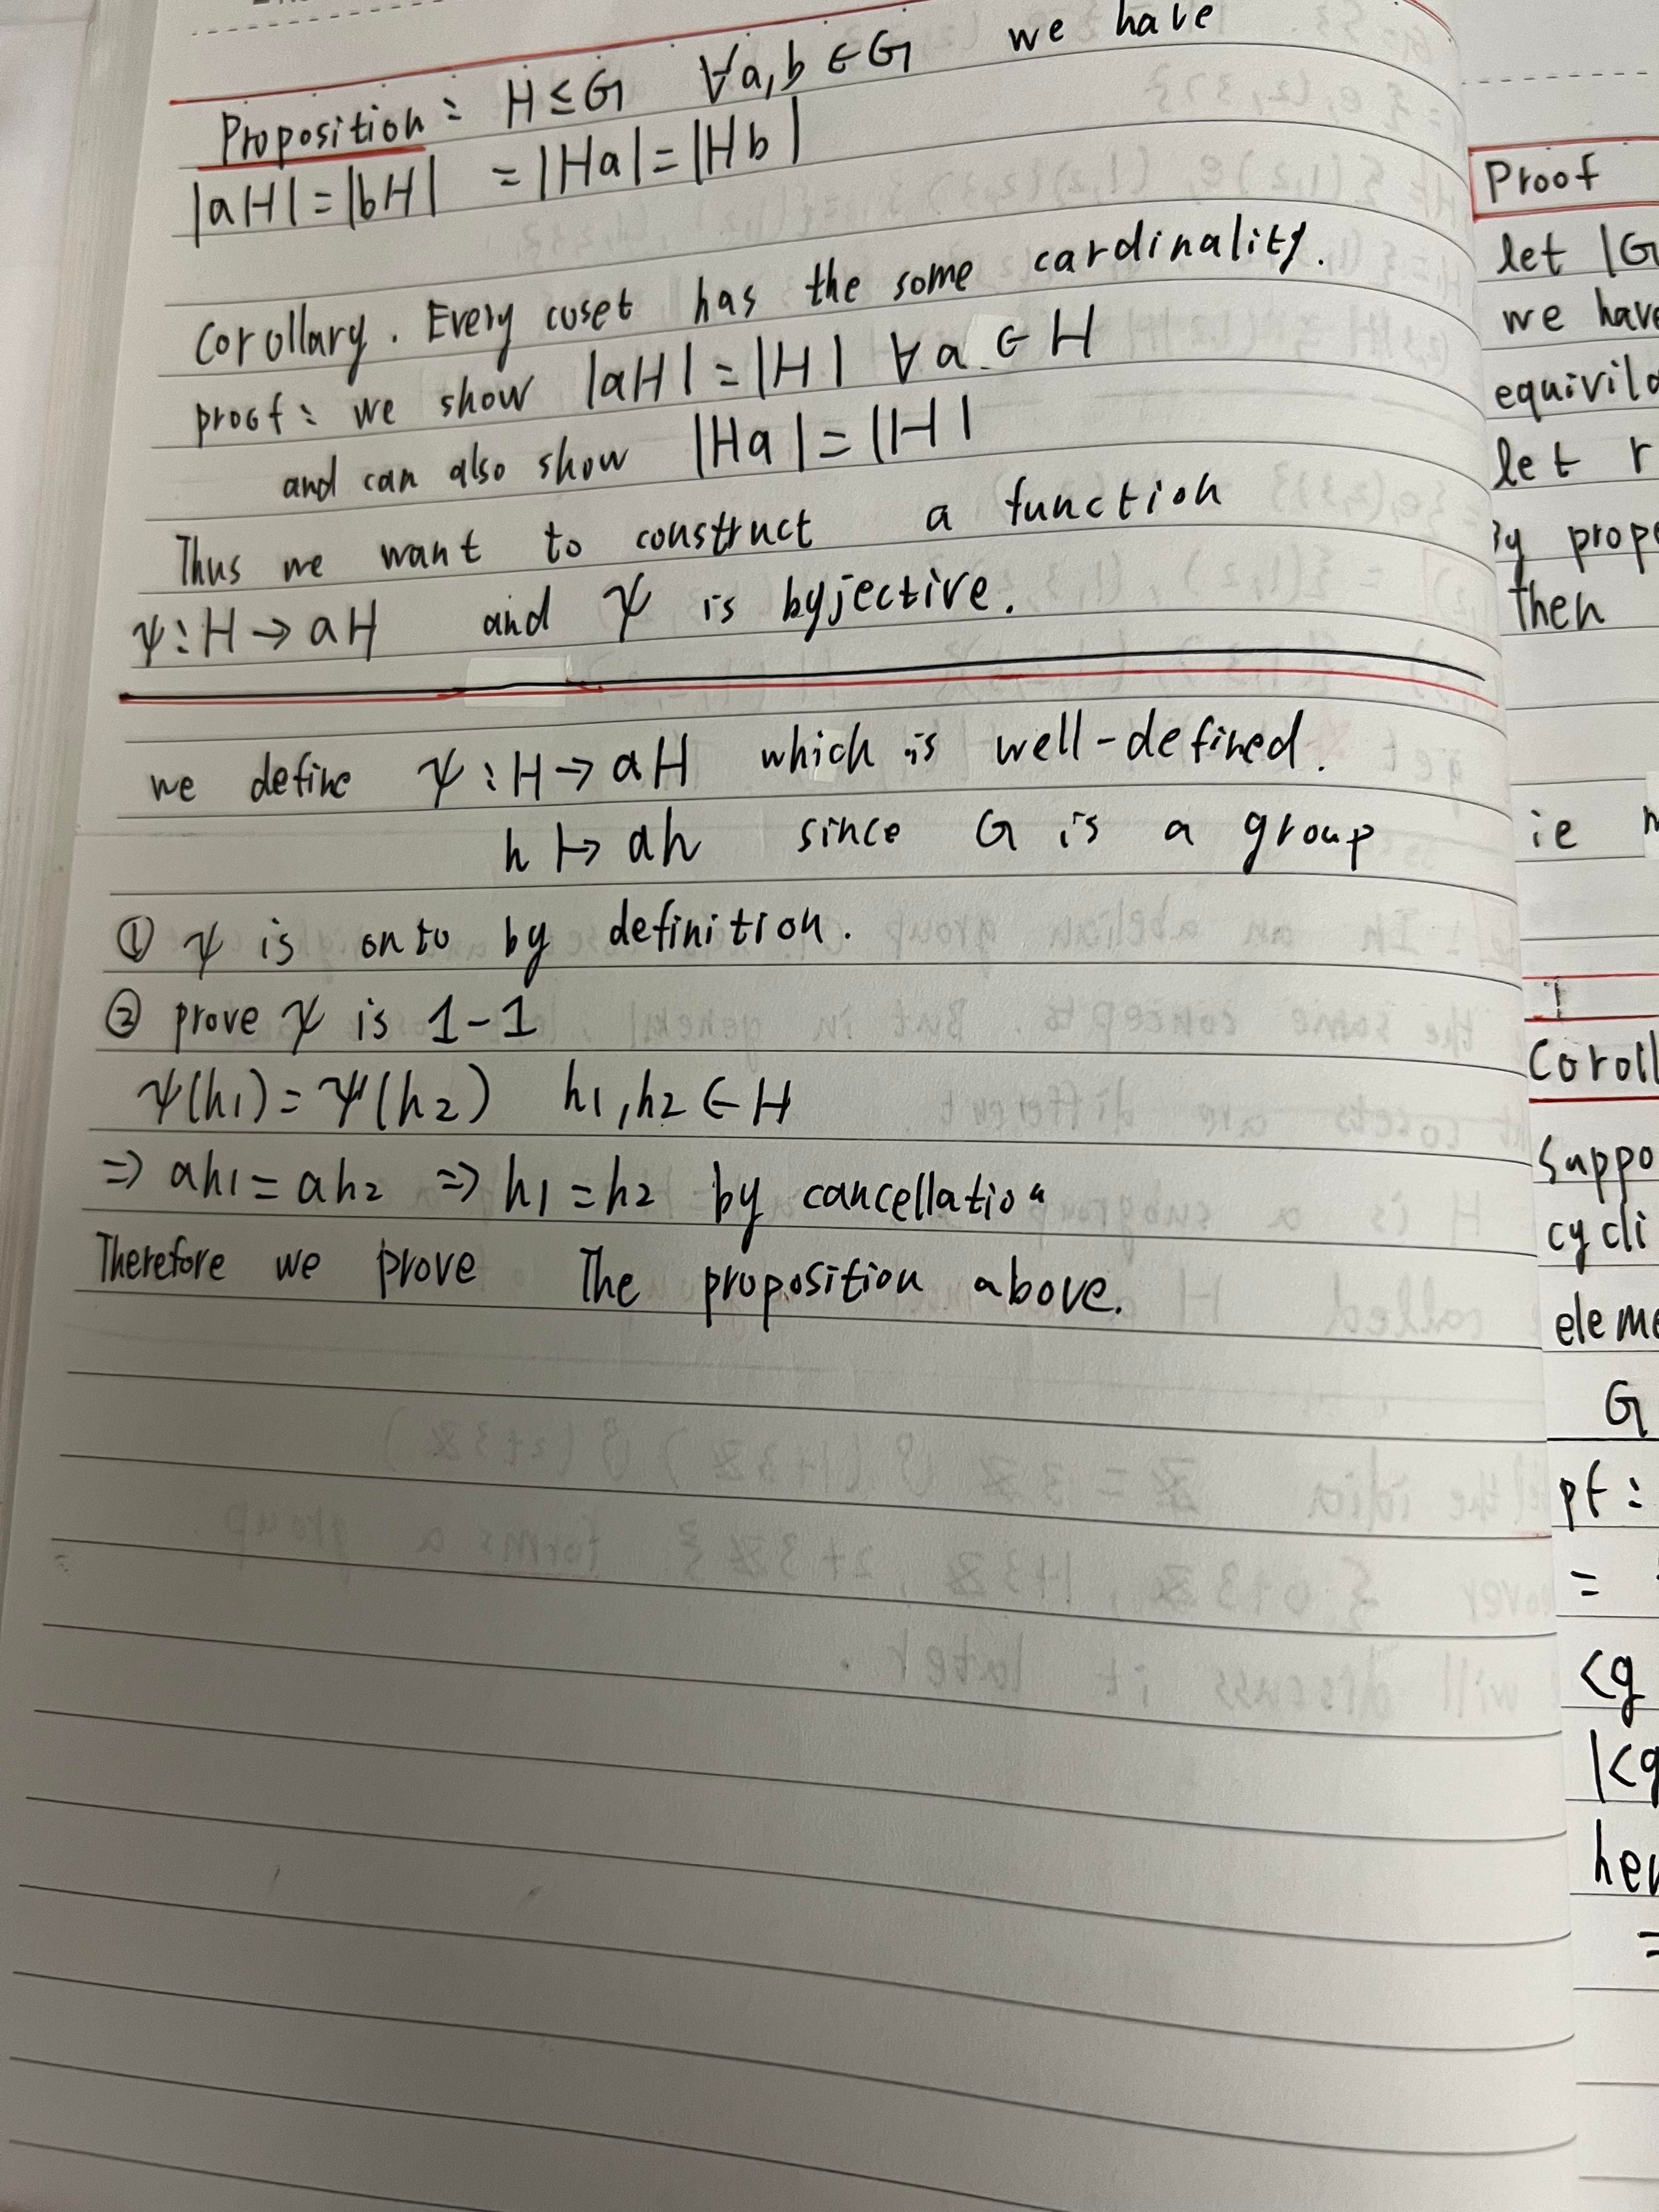 Proposition: H ≤ G ∀a,b ∈ G we have
|aH| = |bH| = |Ha| = |Hb|
Corollary. Every coset has the some cardinality.
proof: we show |aH| = |H| ∀a ∈ H
and can also show |Ha| = |H|
Thus we want to construct a function
ψ: H → aH and ψ is byjective.
we define ψ: H → aH which is well-defined.
h ↦ ah since G is a group
① ψ is onto by definition.
② prove ψ is 1-1
ψ(h1) = ψ(h2) h1,h2 ∈ H
⇒ ah1 = ah2 ⇒ h1 = h2 by cancellation
Therefore we prove The proposition above.
Proof
let |G
we have
let r
By prop
then
ie
Coroll
Suppo
cycli
eleme
G
pf:
=
<g
|<g
hen
=